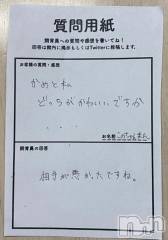 質問用紙
飼育員への質問や感想を書いてね!
回答は館内に掲示もしくはTwitterに投稿します。
お客様の質問・感想
かめと私
どっちがかわいいですか
...
お名前
飼育員の回答
相手が悪かったですね。